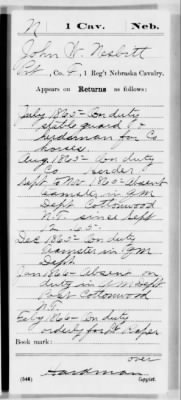 N 1 Cav. Neb.
John W. Nesbitt
Pvt, Co. F, 1 Reg't Nebraska Cavalry.
Appears on
Returns as follows:
July 1865 - On duty
stable guard &
herdsman for Co
horses.
Aug. 1865 - On duty
Co
Sept to Nov 1865 - Absent
teamster in QM
Dept Cottonwood
N.T. since Sept
Dec 1865 - On duty
teamster in QM
Dept
Jan 1866 - Absent on
duty in QM Dept
Post Cottonwood
N.T.
Feby 1866 - On duty
orderly for
Book mark:
over
(546)
Hardman
Copyist.